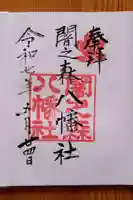 奉拝
闇之森八幡社
令和七年六月廿四日
闇之森
八幡社